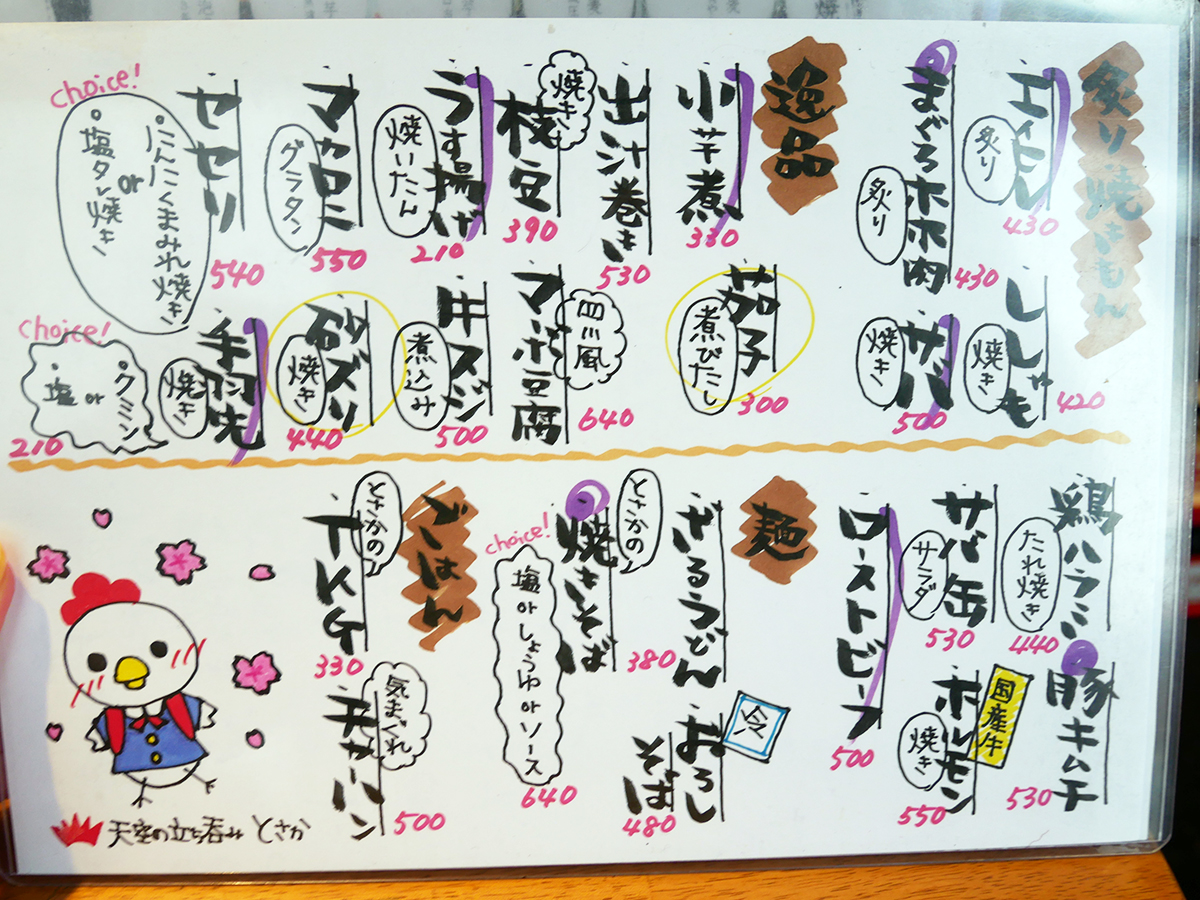 炙り焼きもん
エイヒレ
炙り
430
ししゃも
焼き
420
まぐろホホ肉
炙り
430
サバ
焼き
500
逸品
小芋煮
330
茄子
煮びたし
300
出汁巻き
530
マーボ豆腐
四川風
640
焼き
枝豆
390
牛スジ
煮込み
500
うす揚げ
焼いたん
210
砂ズリ
焼き
440
マカロニ
グラタン
550
手羽先
焼き
choice!
・クミン
or
・塩
210
セセリ
choice!
・にんにくまみれ焼き
or
・塩タレ焼き
540
鶏ハラミ
たれ焼き
440
豚キムチ
530
サバ缶
サラダ
530
国産牛
ホルモン
焼き
550
ローストビーフ
500
麺
ざるうどん
380
冷
おろし
そば
480
とさかの
焼きそば
choice!
塩 or しょうゆ or ソース
640
ごはん
とさかの
TKG
330
気まぐれ
チャーハン
500
天空の立ち呑み とさか